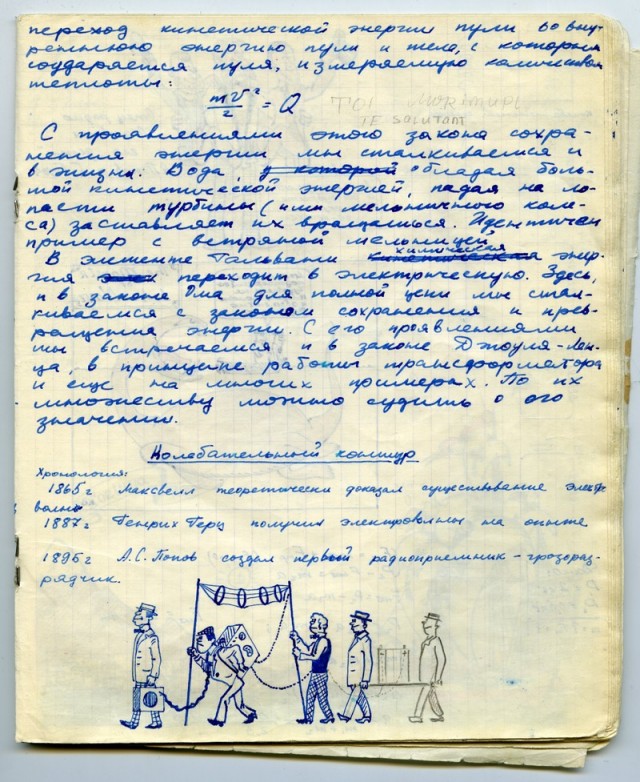 переход кинетической энергии пули во вну-
реннюю энергию пули и тела, с которым
соударяется пуля, измеряемую количеством
теплоты:
mv²/2 = Q
TE SALUTANT
С проявлениями этого закона сохра-
нения энергии мы сталкиваемся и
в жизни. Вода у которой обладая боль-
шой кинетической энергией, падая на ло-
пасти турбины (или мельничного коле-
са) заставляет их вращаться. Идентичен
пример с ветряной мельницей.
химическая
В элементе Гальвани кинетическая энер-
гия переходит в электрическую. Здесь,
и в законе Ома для полной цепи мы стал-
киваемся с законом сохранения и прев-
ращения энергии. С его проявлениями
мы встречаемся и в законе Джоуля-Лен-
ца, в принципе работы трансформатора
и еще на многих примерах. По их
множеству можно судить о его
значении.
Колебательный контур
Хронология:
1865г Максвелл теоретически доказал существование электр
волны
1887г Генрих Герц получил электроволны на опыте
1895г А.С. Попов создал первый радиоприемник - грозораз-
рядчик.